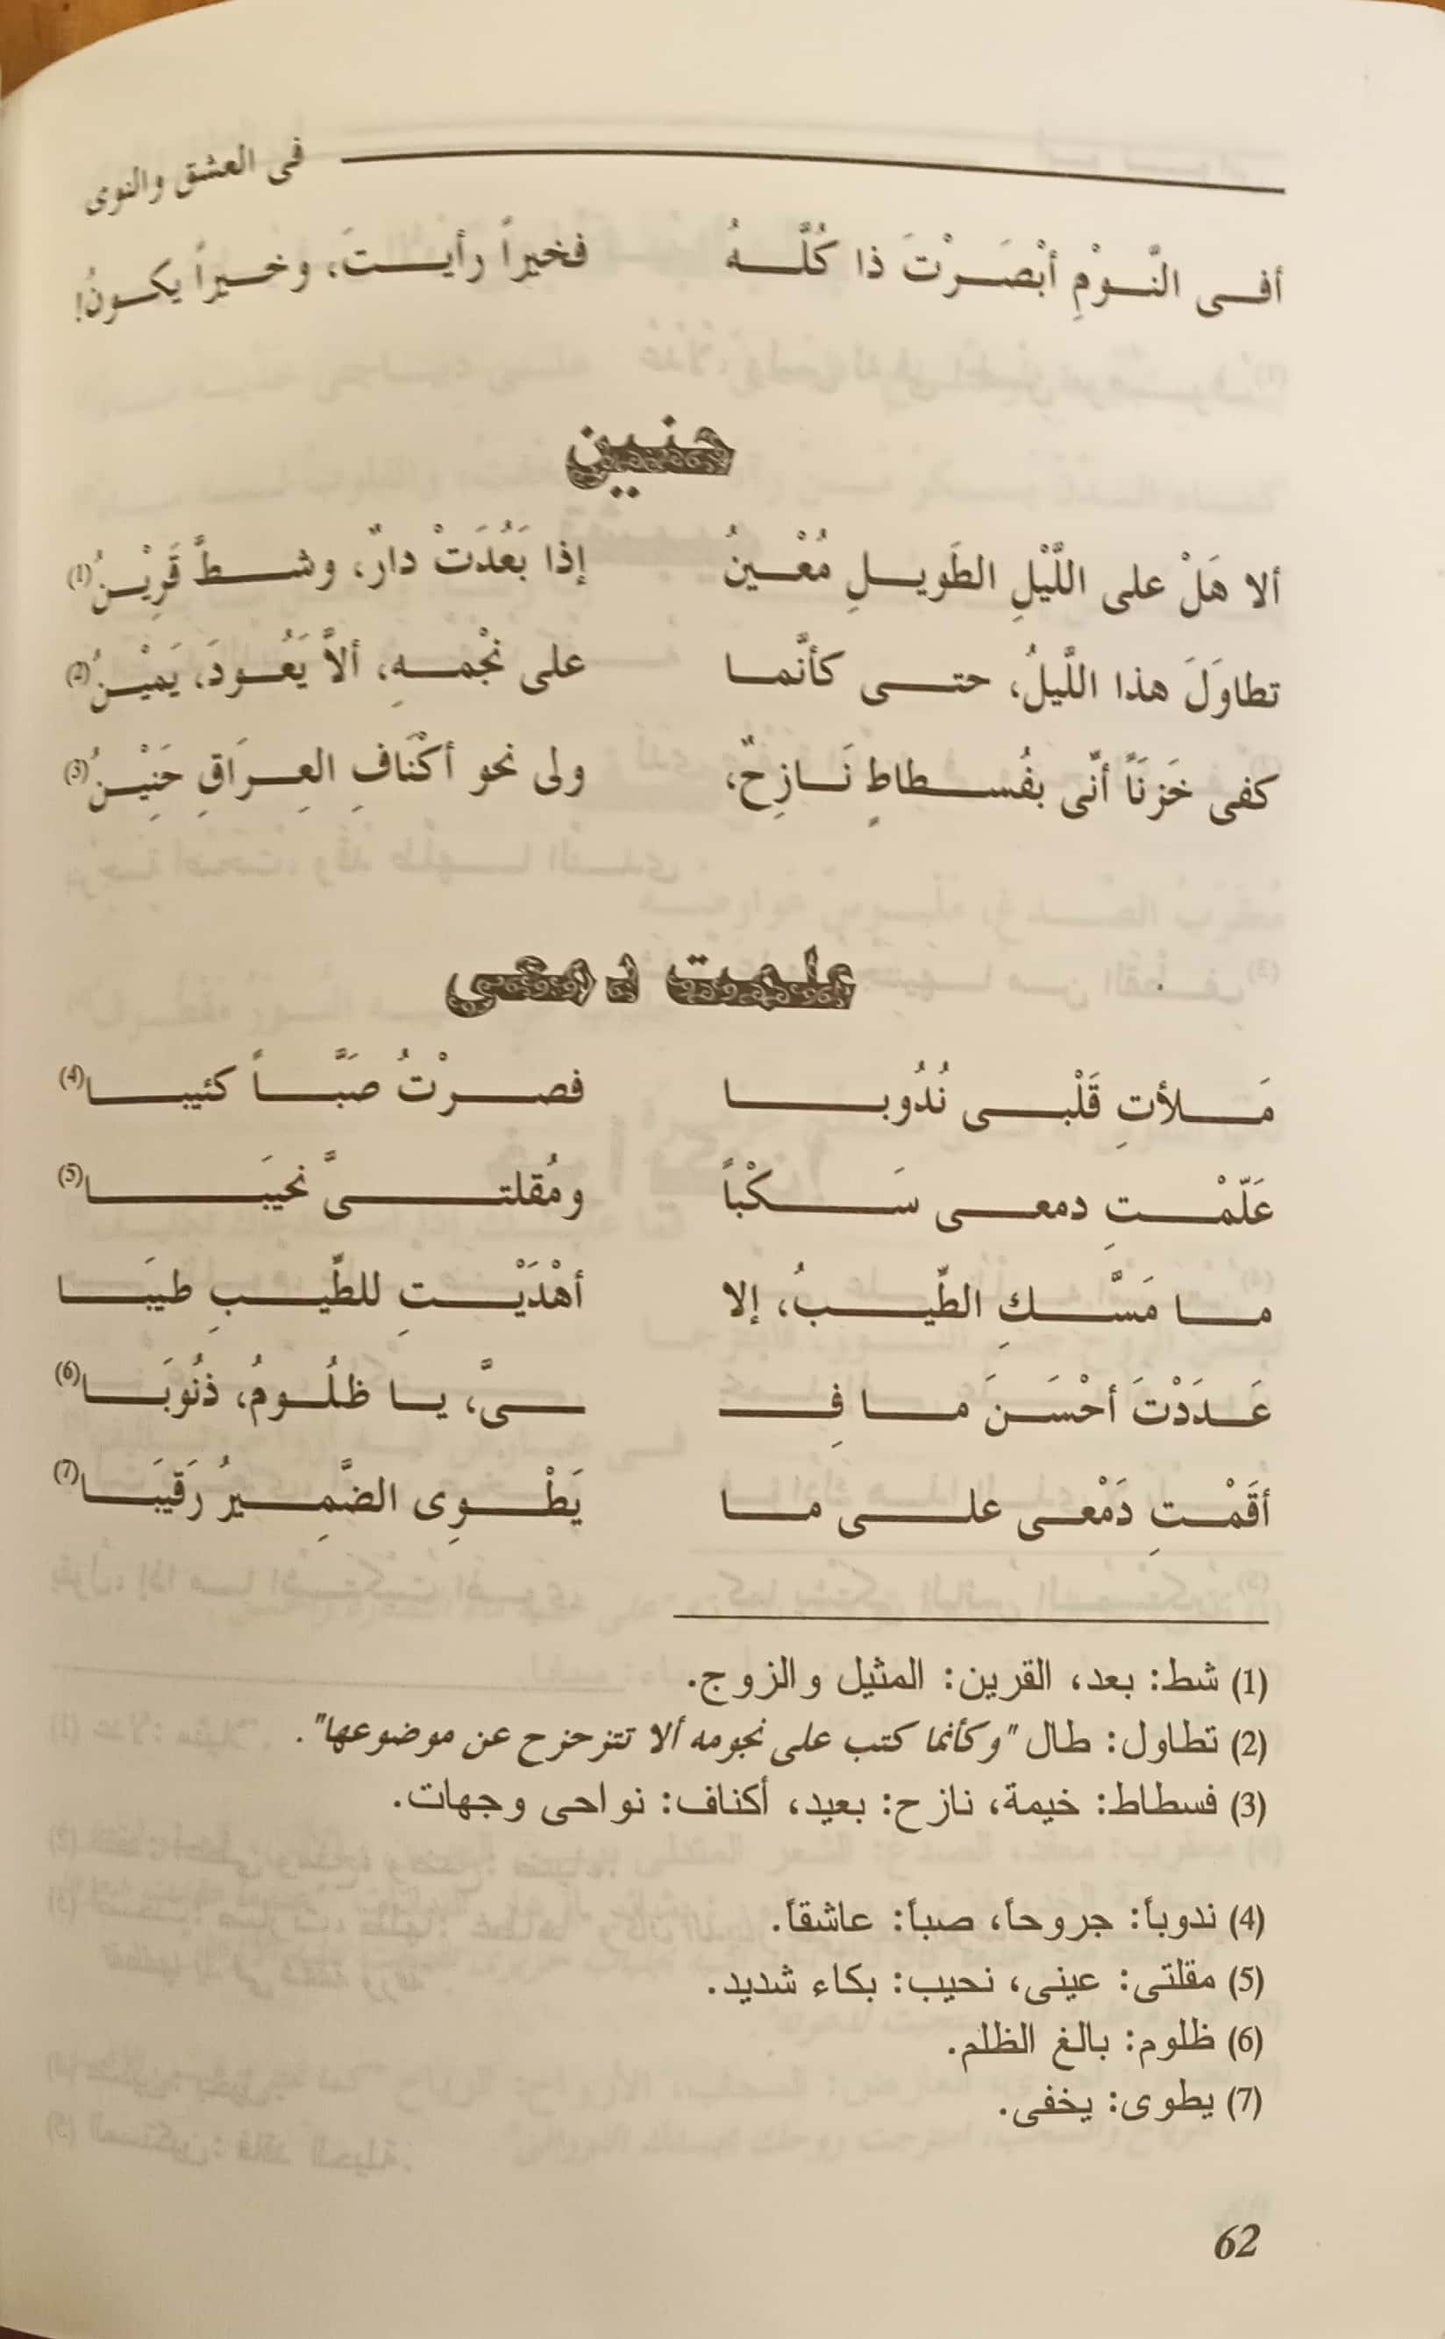 فى العشق والنوى
أفى النَّوْمِ أبْصَرْتَ ذا كُلَّهُ فخيراً رأيتَ، وخيراً يكونُ!
حنين
ألا هَلْ على اللَّيْلِ الطَويلِ مُعْينُ إذا بَعُدَتْ دارٌ، وشطَّ قَرِيْنُ(1)
تطاوَلَ هذا اللَّيلُ، حتى كأنَّما على نجْمهِ، ألاَّ يَعُودَ، يَميْنُ(2)
كفى حَزنَاً أنّى بفُسطاطٍ نَازِحٌ، ولى نحو أكْنَافِ العِرَاقِ حَنِيْنُ(3)
علمت دمعى
مَلأتِ قَلْبى نُدُوبا فصرْتُ صَبَّاً كئيبا(4)
عَلّمْتِ دمعى سَكْباً ومُقلتىَّ نحيَبا(5)
ما مَسَّكِ الطِّيبُ، إلا أهْدَيْتِ للطِّيبِ طيبَا
عَدَدْتَ أحْسَنَ ما فِـ ـىَّ، يا ظلُومُ، ذنُوبَا(6)
أقَمْتِ دَمْعى على ما يَطْوِى الضَّمِيرُ رَقيبَا(7)
(1) شط: بعد، القرين: المثيل والزوج.
(2) تطاول: طال "وكأنما كتب على نجومه ألا تتزحزح عن موضوعها".
(3) فسطاط: خيمة، نازح: بعيد، أكناف: نواحى وجهات.
(4) ندوباً: جروحاً، صباً: عاشقاً.
(5) مقلتى: عينى، نحيب: بكاء شديد.
(6) ظلوم: بالغ الظلم.
(7) يطوى: يخفى.
62